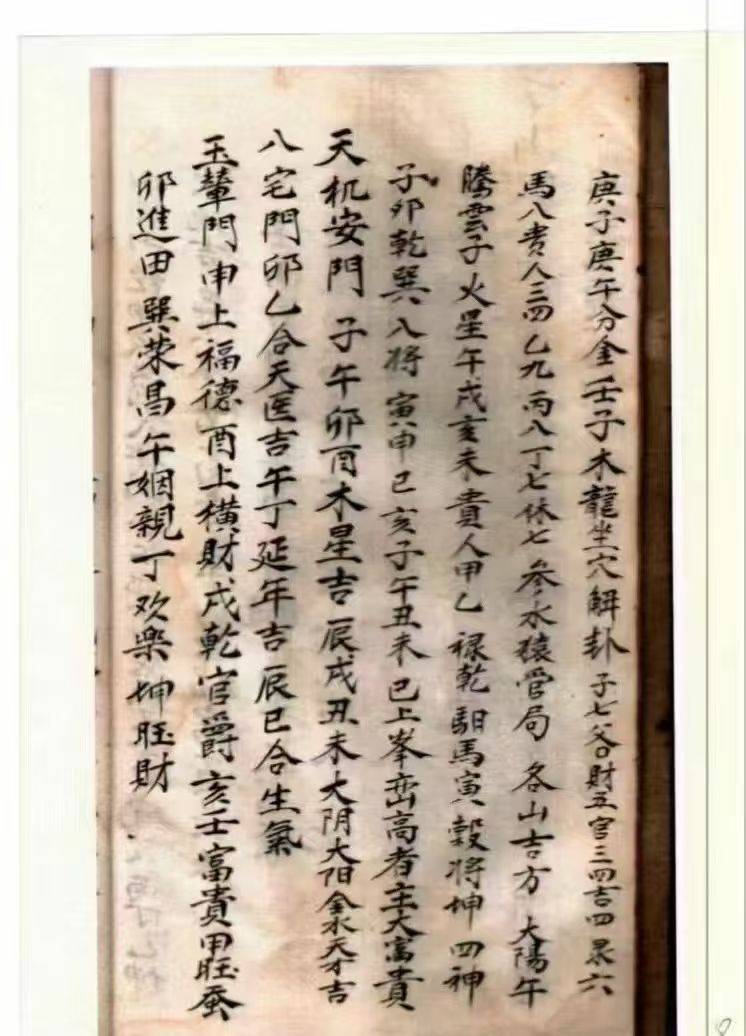 庚子庚午分金壬子木龍坐穴解卦子七谷口財五官三四吉四杀六
馬八贵人三四乙九丙八丁七休七参水猿管局各山吉方大陽午
騰雲子火星午戌亥未貴人甲乙禄乾馹馬寅穀将坤四神
子卯乾巽八将寅申巳亥子午丑未巳上峯巒高者主大富貴
天机安門子午卯酉木星吉辰戌丑未大阴大阳金水天才吉
八宅門卯乙合天医吉午丁延年吉辰巳合生氣
玉輦門申上福德酉上横財戌乾官爵亥壬富貴甲旺蚕
卯進田巽荣昌午姻親丁欢樂坤旺財